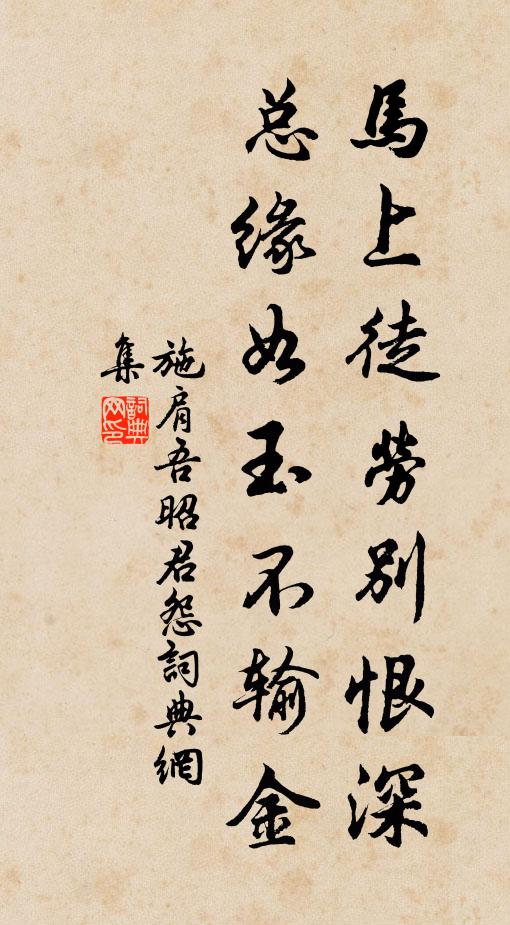 馬上徒勞別恨深
总缘如玉不输金
施肩吾昭君怨詞典網
集
詞典网印